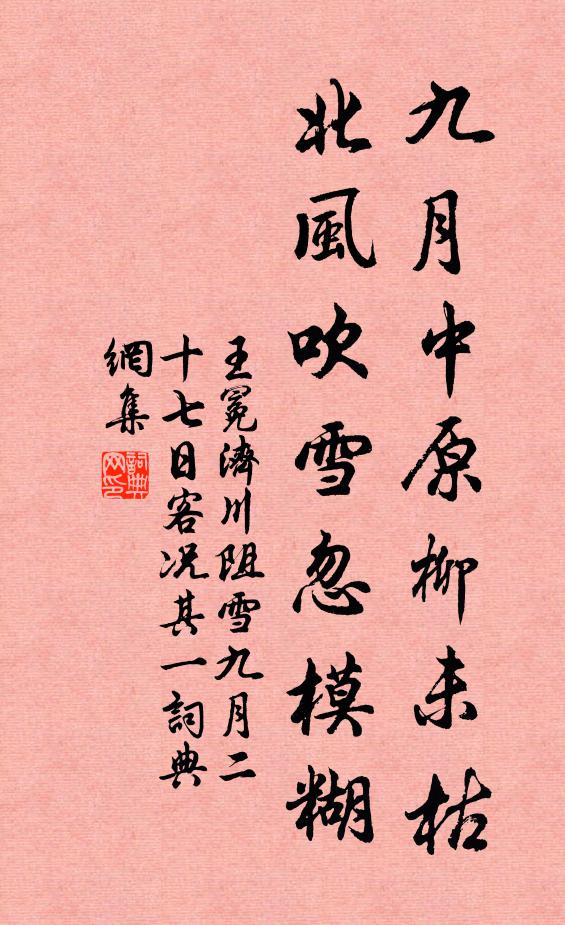 九月中原柳未枯
北風吹雪忽模糊
王冕濟川阻雪九月二
十七日客况其一詞典
網集
詞典网印